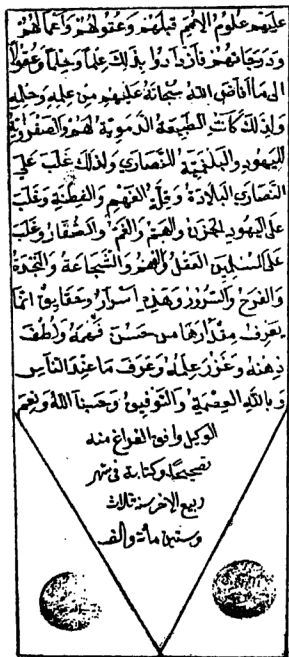 عليهم علوم الأمم قبلهم وعقولهم وأعمالهم
ودرجاتهم فازدادوا بذلك علما وحلما وعقولا
الى ما أفاض الله سبحانه عليهم من علمه وحلمه
ولذلك كانت الطبيعة الدموية لهم والصفراوية
لليهود والبلغمية للنصارى ولذلك غلب على
النصارى البلادة وقلة الفهم والفطنة وغلب
على اليهود الحزن والهم والغم والصغار وغلب
على المسلمين العقل والفهم والشجاعة والنجدة
والفرح والسرور وهذه اسرار وحقايق انما
يعرف مقدارها من حسن فهمه ولطف
ذهنه وغزر علمه وعرف ما عند الناس
وبالله العصمة والتوفيق وحسبنا الله ونعم
الوكيل وافق الفراغ منه
تصحيحا وكتابة في شهر
ربيع الاخر سنة ثلاث
وستين مائة والف